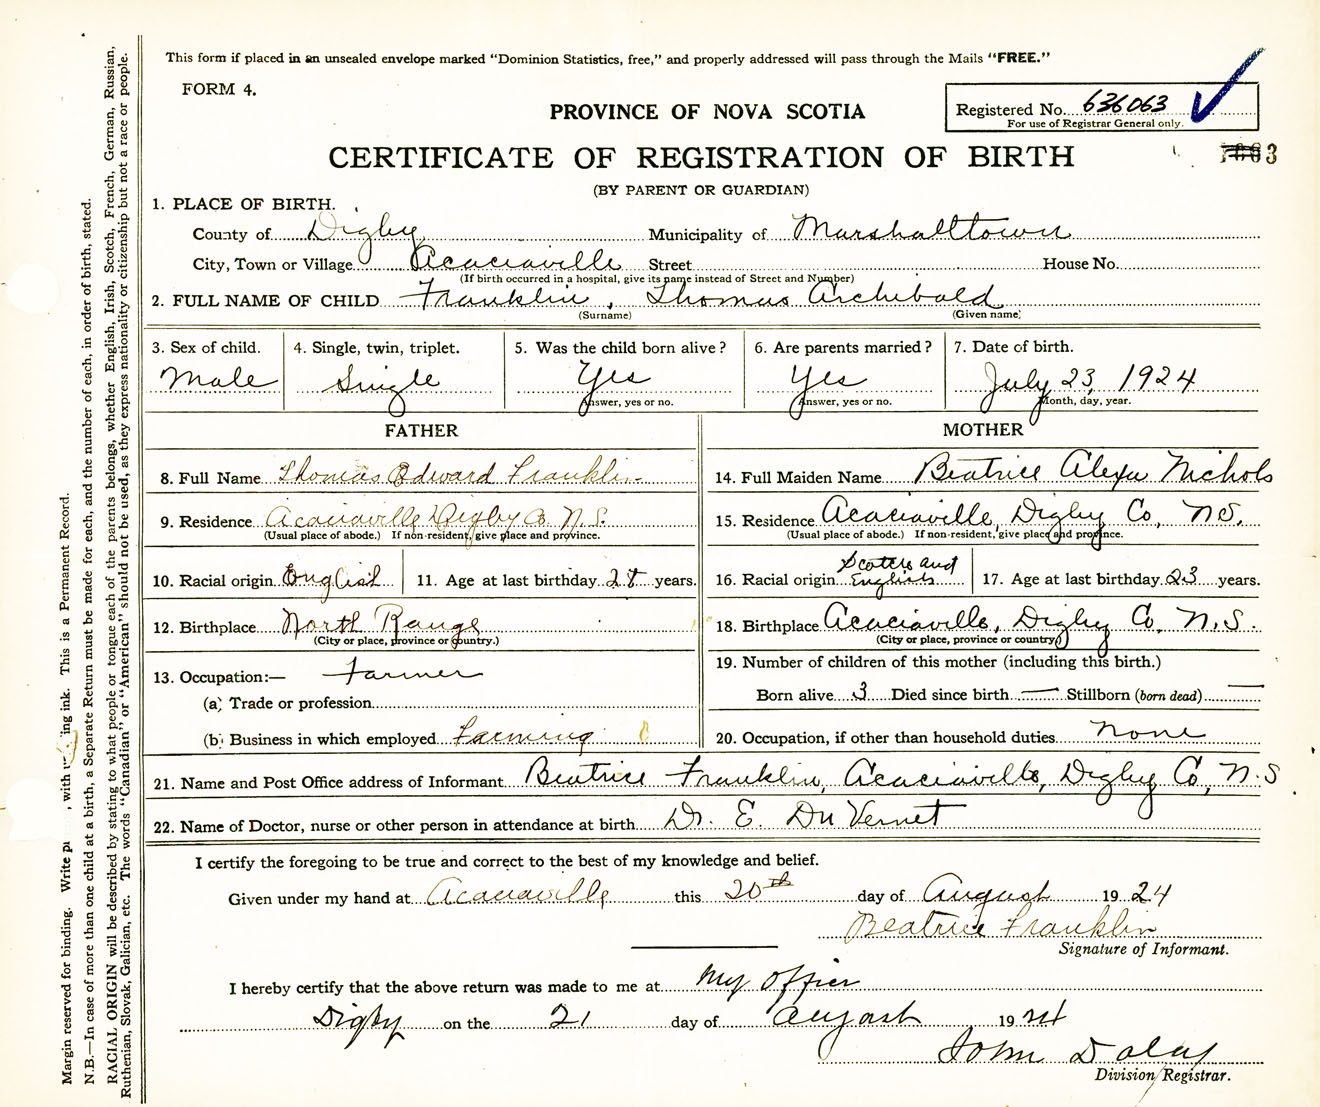 This form if placed in an unsealed envelope marked "Dominion Statistics, free," and properly addressed will pass through the Mails "FREE."
FORM 4.
PROVINCE OF NOVA SCOTIA
Registered No. 636063
For use of Registrar General only.
CERTIFICATE OF REGISTRATION OF BIRTH
(BY PARENT OR GUARDIAN)
1. PLACE OF BIRTH.
County of Digby Municipality of Marshalltown
City, Town or Village Acaciaville Street House No.
(If birth occurred in a hospital, give its name instead of Street and Number)
2. FULL NAME OF CHILD Franklin, Thomas Archibald
(Surname) (Given name)
3. Sex of child. 4. Single, twin, triplet. 5. Was the child born alive? 6. Are parents married? 7. Date of birth.
Male Single Yes Yes July 23, 1924
Answer, yes or no. Answer, yes or no. Month, day, year.
FATHER MOTHER
8. Full Name Thomas Edward Franklin 14. Full Maiden Name Beatrice Alexa Nichols
9. Residence Acaciaville Digby Co. N.S. 15. Residence Acaciaville, Digby Co, N.S.
(Usual place of abode.) If non-resident, give place and province. (Usual place of abode.) If non-resident, give place and province.
10. Racial origin English 11. Age at last birthday 28 years. 16. Racial origin Scotch and English 17. Age at last birthday 23 years.
12. Birthplace North Range 18. Birthplace Acaciaville, Digby Co, N.S.
(City or place, province or country.) (City or place, province or country)
13. Occupation:— Farmer 19. Number of children of this mother (including this birth.)
(a) Trade or profession Born alive 3 Died since birth — Stillborn (born dead) —
(b) Business in which employed Farming 20. Occupation, if other than household duties None
21. Name and Post Office address of Informant Beatrice Franklin, Acaciaville, Digby Co, N.S
22. Name of Doctor, nurse or other person in attendance at birth Dr. E. Du Vernet
I certify the foregoing to be true and correct to the best of my knowledge and belief.
Given under my hand at Acaciaville this 20th day of August 1924
Beatrice Franklin
Signature of Informant.
I hereby certify that the above return was made to me at My Office
Digby on the 21 day of August 1924
John Daley
Division Registrar.
Margin reserved for binding. Write with ing ink. This is a Permanent Record.
N.B.—In case of more than one child at a birth, a Separate Return must be made for each, and the number of each, in order of birth, stated.
RACIAL ORIGIN will be described by stating to what people or tongue each of the parents belongs, whether English, Irish, Scotch, French, German, Russian,
Ruthenian, Slovak, Galician, etc. The words "Canadian" or "American" should not be used, as they express nationality or citizenship but not a race or people.